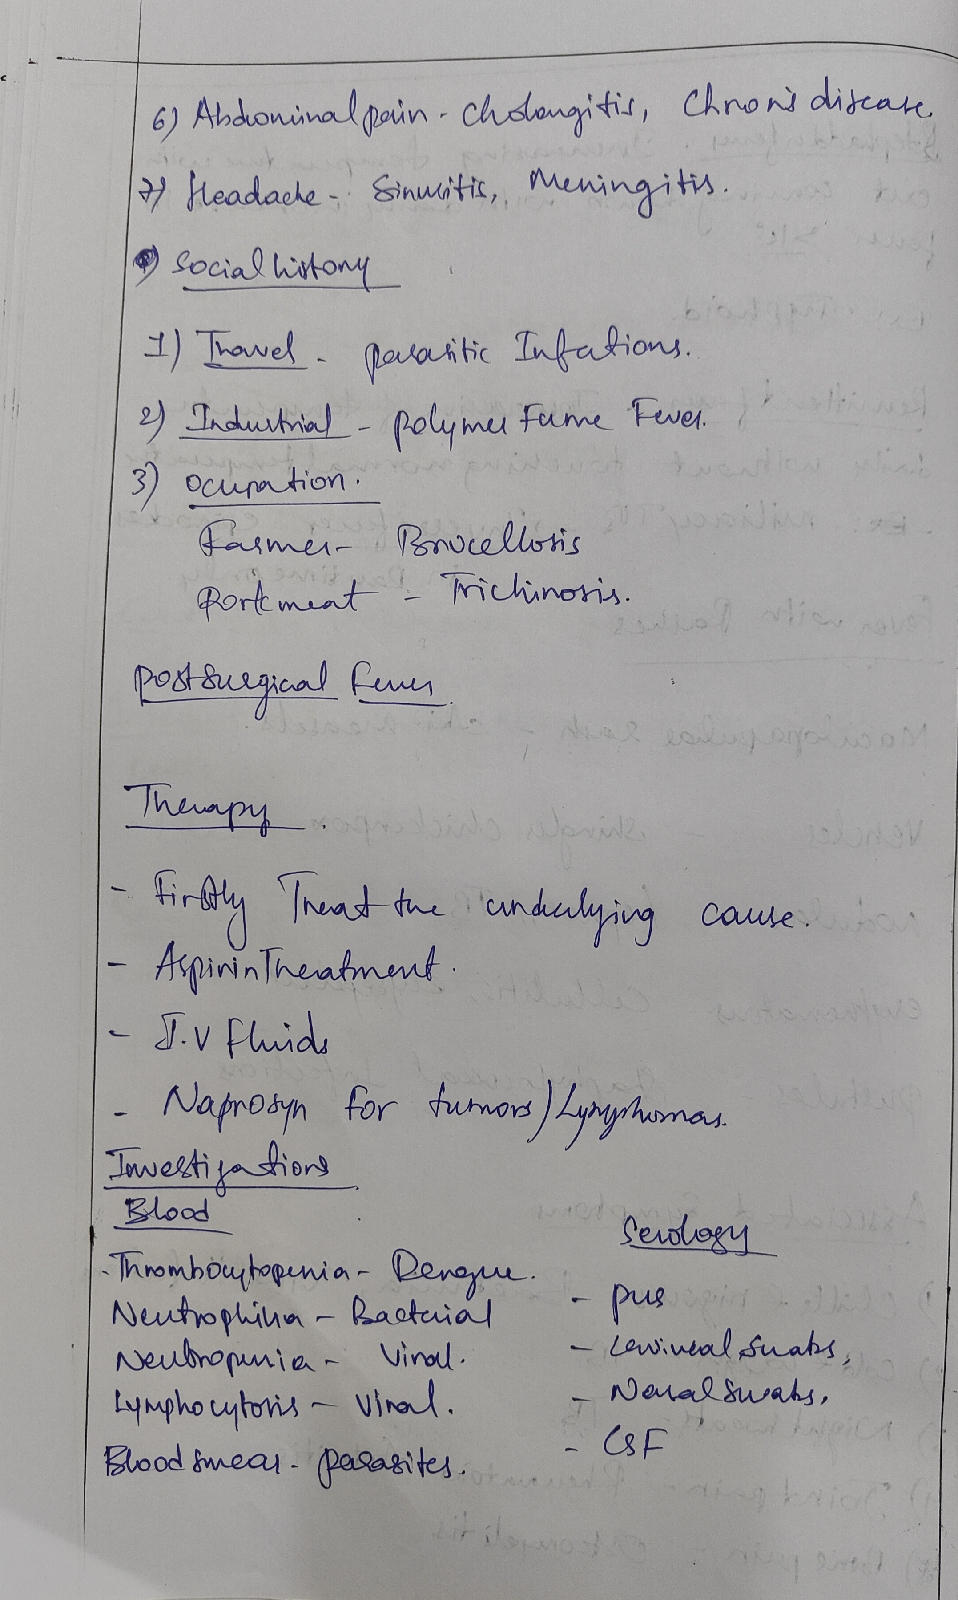 6) Abdominal pain - Cholangitis, Chron's disease.
7) Headache - Sinusitis, Meningitis.
Social history
1) Travel - parasitic Infations.
2) Industrial - polymer Fume Fever.
3) Ocupation.
Farmer - Brucellosis
Pork meat - Trichinosis.
Post Surgical fever
Therapy
- Firstly Treat the underlying cause.
- Aspirin Theatment.
- I.V fluids
- Naprosyn for tumors / Lymphomas.
Investigations
Blood
- Thrombocytopenia - Dengue.
Neutrophilia - Bacterial
Neutropenia - Viral.
Lymphocytosis - Viral.
Blood smear - parasites.
Serology
- pus
- swabs,
- Nasal Swabs,
- CSF